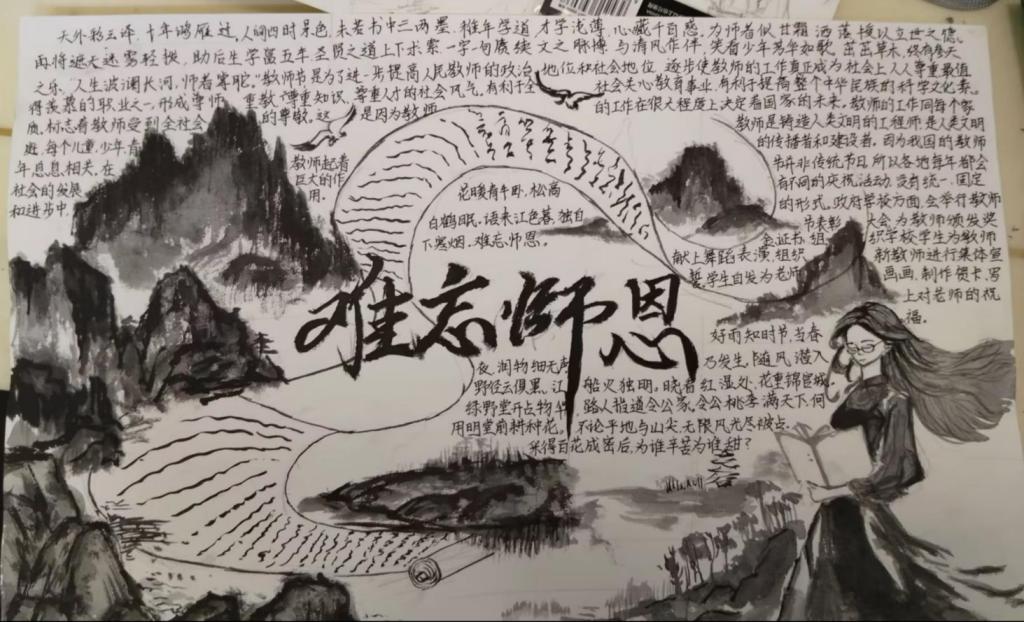 天外彩云译,十年鸿雁过,人间四时景色,未若书中三两墨。稚年学道 才学浅薄,心藏千百惑,为师者似甘霜洒落,授以立世之德。
再将遮天迷雾轻拨,助后生学富五车,圣贤之道上下求索,一字一句赓续文之脉搏,与清风作伴,笑看少年芳华如歌,茁茁草木,终有参天
之乐,人生波澜长河,师者掌舵。"教师节是为了进一步提高人民教师的政治 地位和社会地位,逐步使教师的工作真正成为社会上人人尊重,最值
得羡慕的职业之一,形成尊师 重教、尊重知识、尊重人才的社会风气。有利于全 社会关心教育事业,有利于提高整个中华民族的科学文化素。
质,标志着教师受到全社会 的尊敬,这 是因为教师 的工作在很大程度上决定着国家的未来。教师的工作同每个家
庭,每个儿童,少年,青 教师是铸造人类文明的工程师,是人类文明
年息息相关,在 教师起着 的传播者和建设者。因为我国的教师
社会的发展 巨大的作 节并非传统节日,所以各地每年都会
和进步中, 用。 有不同的庆祝活动,没有统一、固定
的形式。政府学校方面,会举行教师
花暖青牛卧,松高
白鹤眠。语来江色暮,独自
下寒烟。难忘师恩。
节表彰 大会为教师颁发奖
金、证书,组 织学校学生为教师
献上舞蹈表演,组织 新教师进行集体宣
誓,学生自发为老师 画画,制作贺卡,写
上对老师的祝
福。
难忘师恩
好雨知时节,当春
乃发生,随风潜入
夜,润物细无声
野径云俱黑,江 船火独明。晓看红湿处,花重锦官城。
绿野堂开占物华,路人指道令公家。令公桃李满天下,何
用明堂前耕种花。不论平地与山尖,无限风光尽被占。
采得百花成蜜后,为谁辛苦为谁甜?